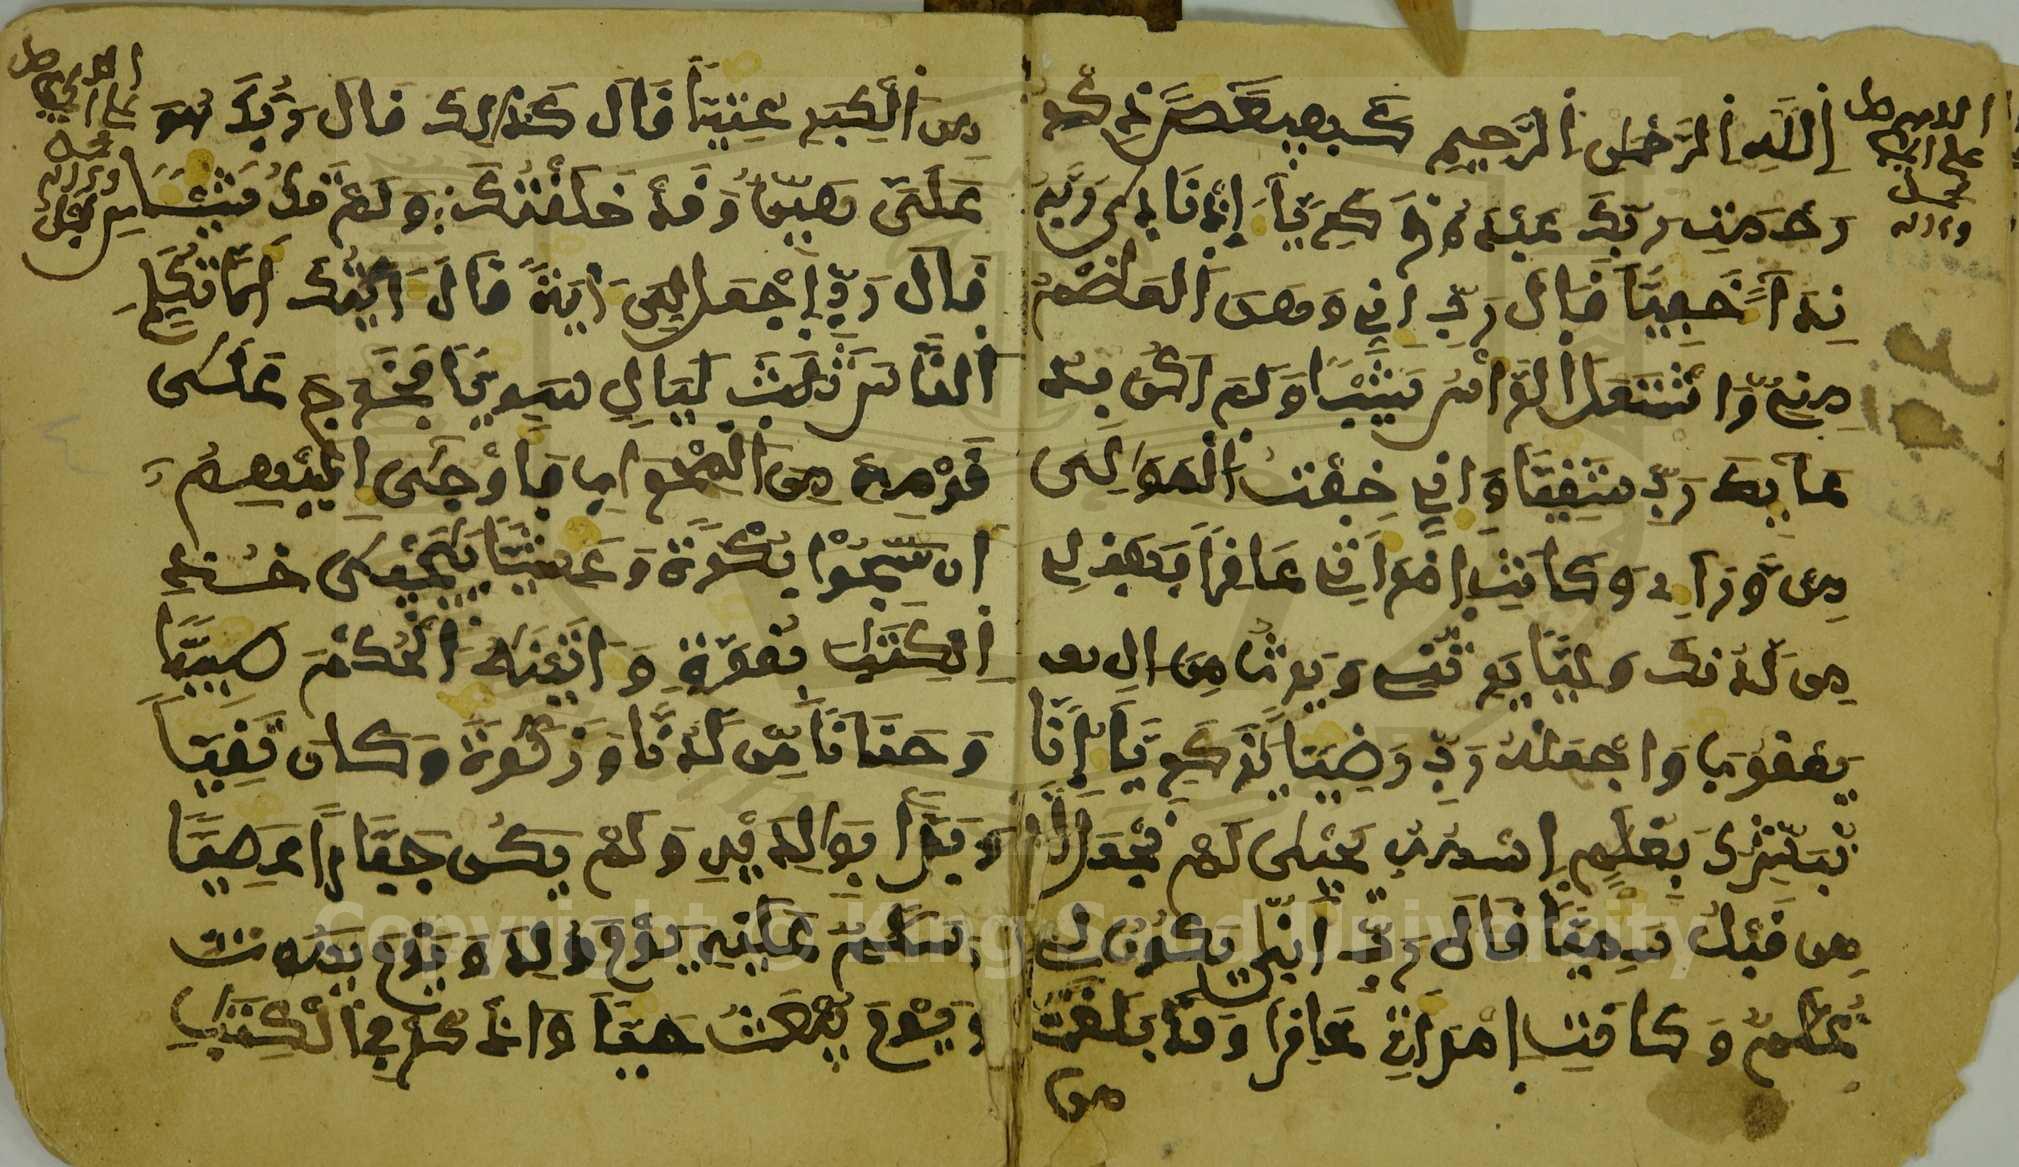 اللَّهِ الرَّحْمَٰنِ الرَّحِيمِ كهيعص ذكر
رحمت ربك عبده زكرياء اذ نادى ربه
نداء خفيا قال رب اني وهن العظم
مني واشتعل الرأس شيبا ولم اكن بد
عايك رب شقيا واني خفت الموالى
من وراءى وكانت امراتي عاقرا فهب لي
من لدنك وليا يرثني ويرث من ال
يعقوب واجعله رب رضيا يزكرياء انا
نبشرك بغلم اسمه يحيى لم نجعل له
من قبل سميا قال رب انى يكون لي
غلم وكانت امراتي عاقرا وقد بلغت
من
من الكبر عتيا قال كذلك قال ربك هو
علي هين وقد خلقتك من قبل ولم تك شيئا
قال رب اجعل لي ءاية قال ءايتك الا تكلم
الناس ثلث ليال سويا فخرج على
قومه من المحراب فاوحى اليهم
ان سبحوا بكرة وعشيا ييحيى خذ
الكتب بقوة وءاتينه الحكم صبيا
وحنانا من لدنا وزكوة وكان تقيا
وبرا بوالديه ولم يكن جبارا عصيا
وسلم عليه يوم ولد ويوم يموت
ويوم يبعث حيا واذكر في الكتب
Copyright © King Saud University